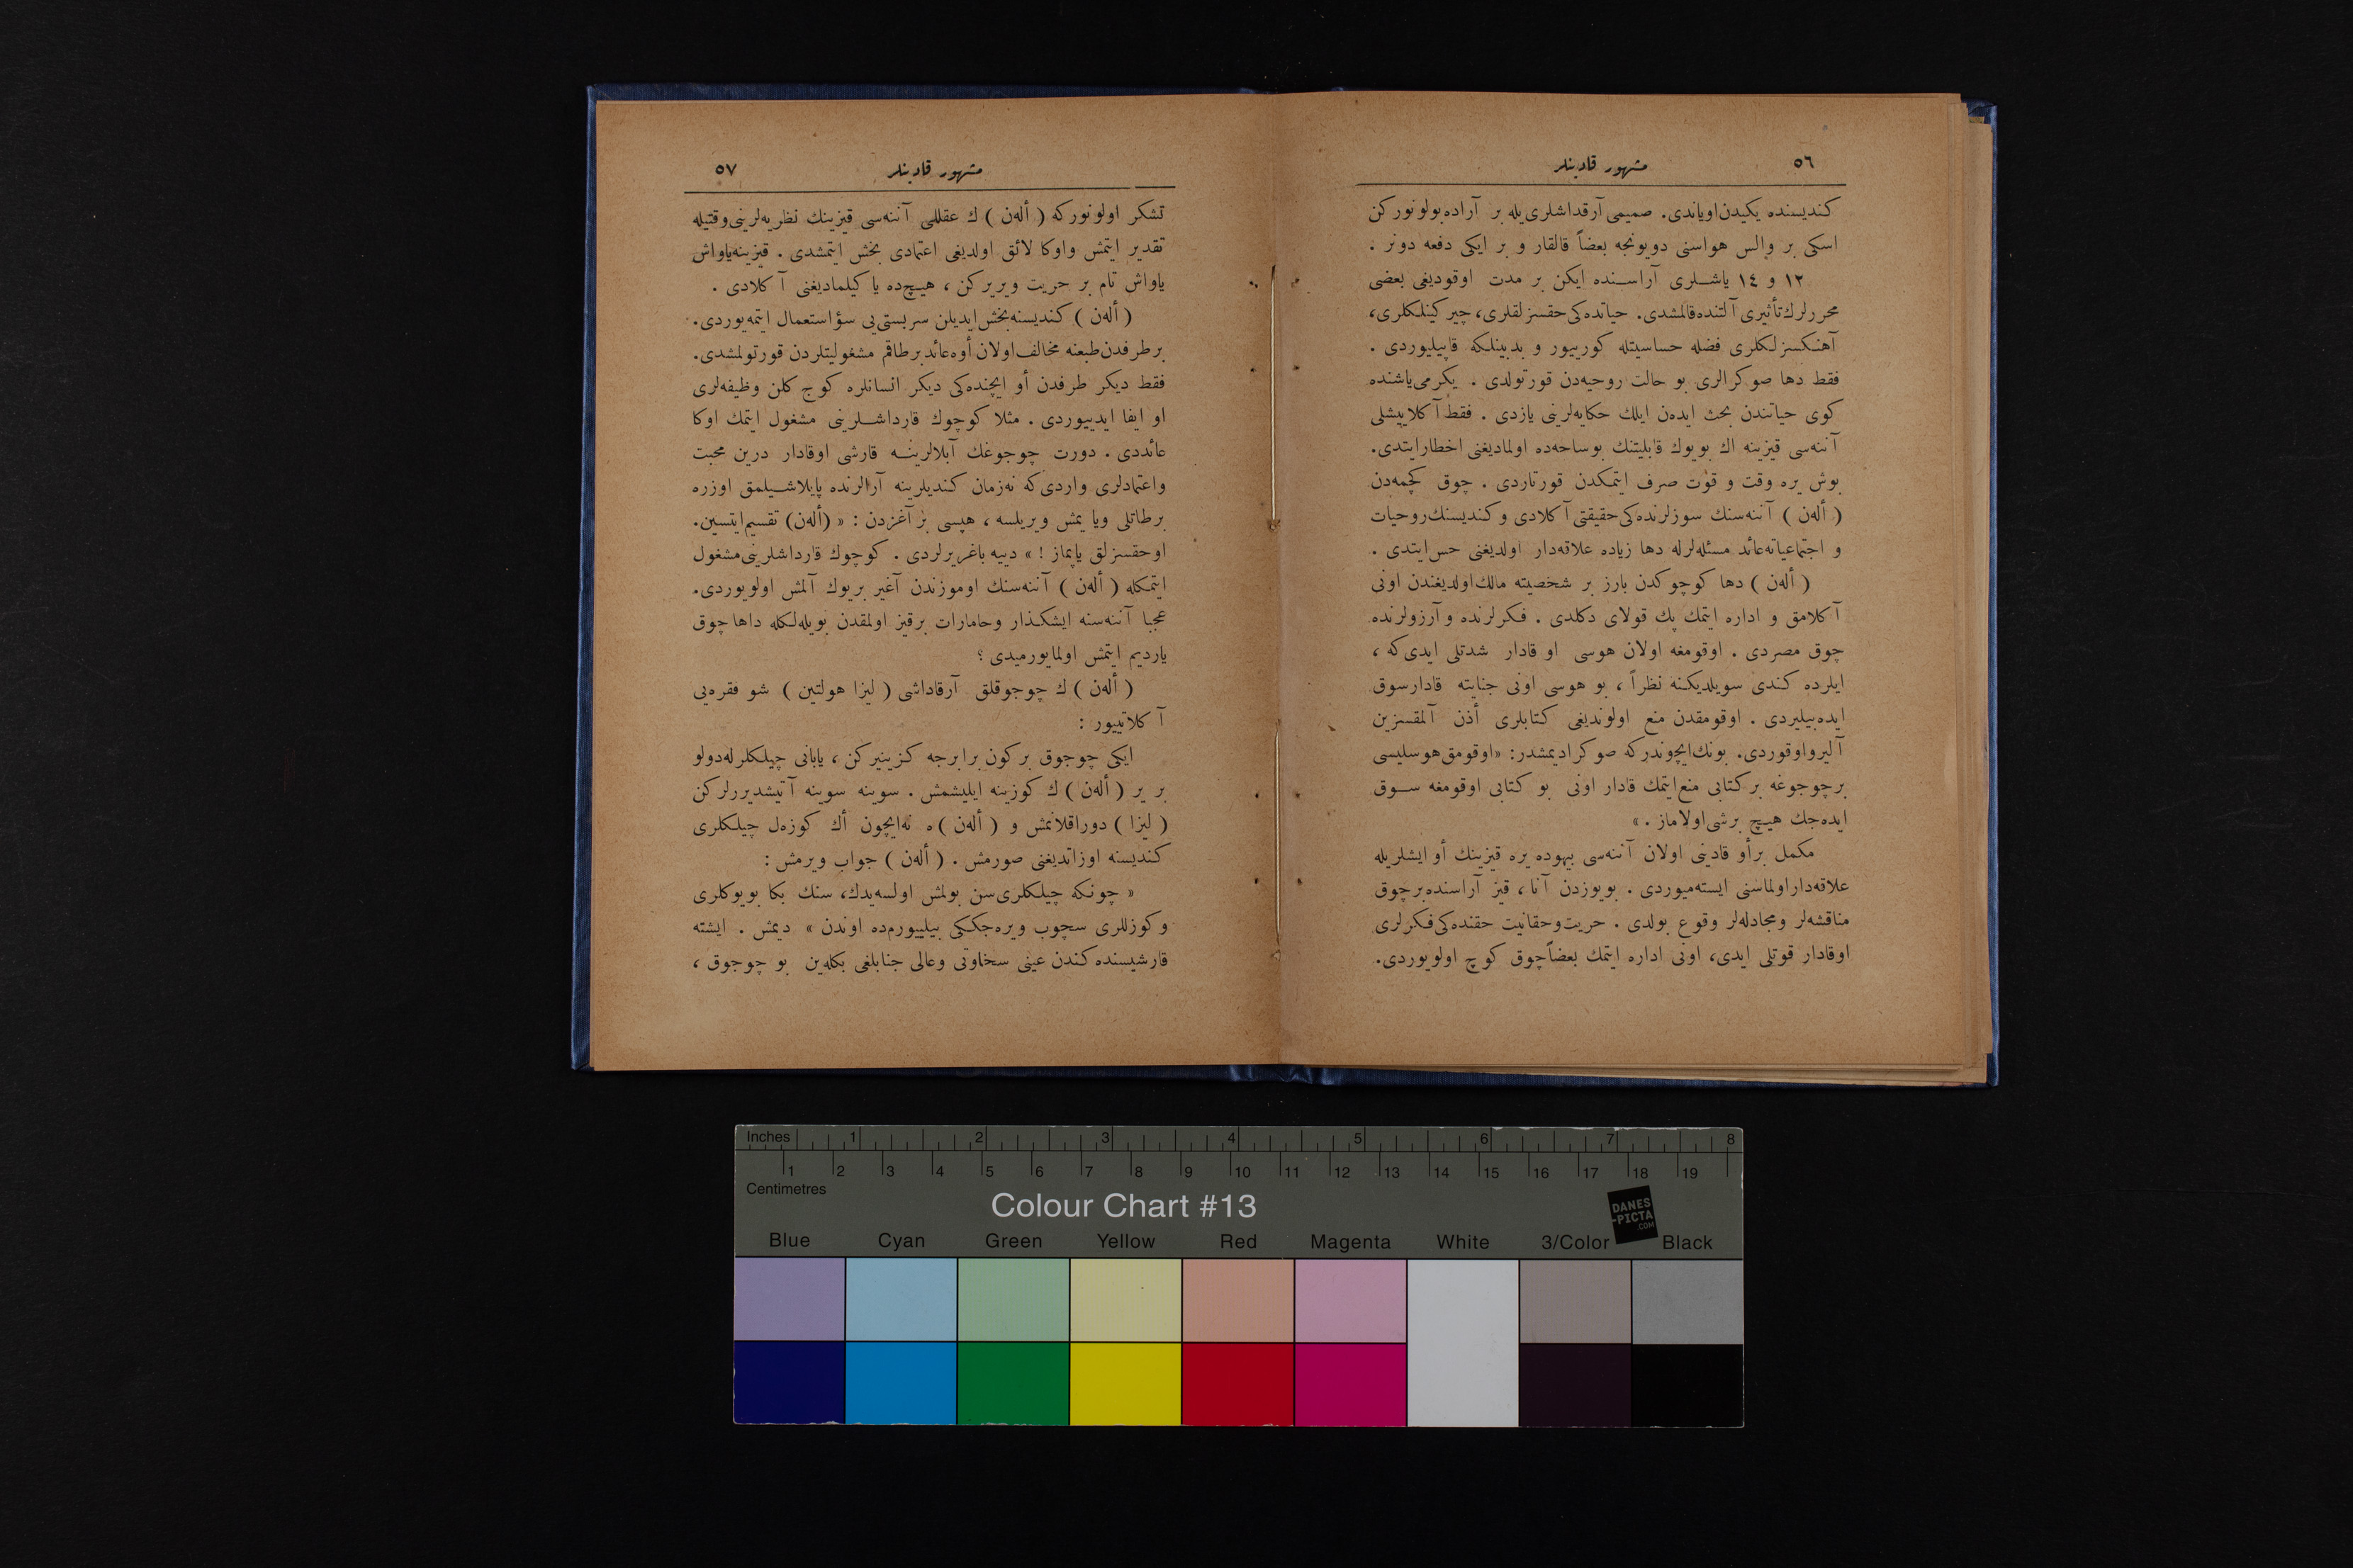 ٥٦
مشهور قادينلر
كنديسنده يكيدن اوياندى. صميمى آرقداشلرى‌يله بر آراده بولونوركن
اسكى بر والس هواسنى دويونجه بعضاً قالقار و بر ايكى دفعه دونر .
١٢ و ١٤ ياشلرى آراسنده ايكن بر مدت اوقوديغى بعضى
محررلرك تأثيرى آلتنده قالمشدى. حياتده‌كى حقسزلقلرى، چيركينلكلرى،
آهنكسزلكلرى فضله حساسيتله كوريبور و بدبينلكه قاپيليوردى .
فقط دها صوكرالرى بو حالت روحيه‌دن قورتولدى . يكرمى ياشنده
كوى حياتندن بحث ايده‌ن ايلك حكايه‌لرينى يازدى . فقط آكلاييشلى
آننه‌سى قيزينه اك بويوك قابليتنك بوساحه‌ده اولماديغنى اخطار ايتدى.
بوش يره وقت و قوت صرف ايتمكدن قورتاردى . چوق كچمه‌دن
( ألەن ) آننه‌سنك سوزلرنده‌كى حقيقتى آكلادى و كنديسنك روحيات
و اجتماعياته عائد مسئله‌لرله دها زياده علاقه‌دار اولديغنى حس ايتدى .
( ألەن ) دها كوچوكدن بارز بر شخصيته مالك اولديغندن اونى
آكلامق و اداره ايتمك پك قولاى دكلدى . فكرلرنده و آرزولرنده
چوق مصردى . اوقومغه اولان هوسى او قادار شدتلى ايدى كه ،
ايلرده كندى سويلديكنه نظراً ، بو هوسى اونى جنايته قادار سوق
ايده‌بيليردى . اوقومقدن منع اولونديغى كتابلرى أذن آلمقسزين
آلير و اوقوردى. بونك ايچوندركه صوكرا ديمشدر: «اوقومق هوسليسى
بر چوجوغه بر كتابى منع ايتمك قادار اونى بو كتابى اوقومغه سوق
ايده‌جك هيچ بر شى اولاماز . »
مكمل بر أو قادينى اولان آننه‌سى بيهوده يره قيزينك أو ايشلريله
علاقه‌دار اولماسنى ايسته‌ميوردى . بويوزدن آنا ، قيز آراسنده بر چوق
مناقشه‌لر و مجادله‌لر وقوع بولدى . حريت و حقانيت حقنده‌كى فكرلرى
اوقادار قوتلى ايدى، اونى اداره ايتمك بعضاً چوق كوچ اولويوردى.
مشهور قادينلر
٥٧
تشكر اولونوركه ( ألەن ) ك عقللى آننه‌سى قيزينك نظريه‌لرينى وقتيله
تقدير ايتمش و اوكا لائق اولديغى اعتمادى بخش ايتمشدى . قيزينه ياواش
ياواش تام بر حريت ويريركن ، هيچ‌ده ياكيلماديغنى آكلادى .
( ألەن ) كنديسنه بخش ايديلن سربستى‌يى سؤاستعمال ايتمه‌يوردى.
بر طرفدن طبعنه مخالف اولان أوه عائد بر طاقم مشغوليتلردن قورتولمشدى.
فقط ديكر طرفدن أو ايچنده‌كى ديكر انسانلره كوج كلن وظيفه‌لرى
او ايفا ايدييوردى . مثلا كوچوك قارداشلرينى مشغول ايتمك اوكا
عائددى . دورت چوجوغك آبلالرينه قارشى اوقادار درين محبت
واعتمادلرى واردى كه نه‌زمان كنديلرينه آرالرنده پايلاشيلمق اوزره
بر طاتلى ويا يمش ويريلسه ، هپسى بر آغزدن : « (ألەن) تقسيم ايتسين.
او حقسزلق ياپماز ! » دييه باغريرلردى . كوچوك قارداشلرينى مشغول
ايتمكله ( ألەن ) آننه‌سنك اوموزندن آغير بر يوك آلمش اولويوردى.
عجبا آننه‌سنه ايشكذار و حامارات بر قيز اولمقدن بويله‌لكله داها چوق
يارديم ايتمش اولمايورميدى ؟
( ألەن ) ك چوجوقلق آرقاداشى ( ليزا هولتين ) شو فقره‌يى
آكلاتييور :
ايكى چوجوق بر كون برابرجه كزينيركن ، يابانى چيلكلرله دولو
بر ير ( ألەن ) ك كوزينه ايليشمش . سوينه سوينه آتيشديررلركن
( ليزا ) دوراقلانمش و ( ألەن ) ه نه‌ايچون أك كوزه‌ل چيلكلرى
كنديسنه اوزاتديغنى صورمش . ( ألەن ) جواب ويرمش :
« چونكه چيلكلرى سن بولمش اولسه‌يدك، سنك بكا بويوكلرى
و كوزللرى سچوب ويره‌جككى بيلييورم‌ده اوندن » ديمش . ايشته
قارشيسنده كندن عينى سخاوتى و عالى جنابلغى بكله‌ين بو چوجوق ،
Inches
1 2 3 4 5 6 7 8
1 2 3 4 5 6 7 8 9 10 11 12 13 14 15 16 17 18 19
Centimetres
Colour Chart #13
DANES
-PICTA
.COM
Blue Cyan Green Yellow Red Magenta White 3/Color Black